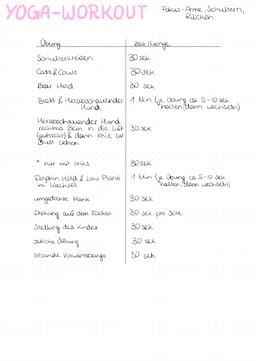 YOGA-WORKOUT
Fokus: Arme, Schultern,
Rücken
Übung
Zeit/Menge
Schulterkreisen 30 sek
Cats & Cows 30 sek
Bear Hold 30 sek
Brett & Herabschauender 1 Min (je Übung ca 5-10 sek
Hund halten, dann wechseln)
Herabschauender Hund
rechtes Bein in die Luft 30 sek
(gestreckt) & dann Knie zur
Brust ziehen
* nur mit links 30 sek
Dolphin Hold & Low Plank 1 Min (je Übung ca 5-10 sek
im Wechsel halten, dann wechseln)
umgedrehte Plank 30 sek
Drehung auf dem Rücken 30 sek pro Seite
Stellung des Kindes 30 sek
seitliche Öffnung 30 sek
sitzende Vorwärtsbeuge 30 sek